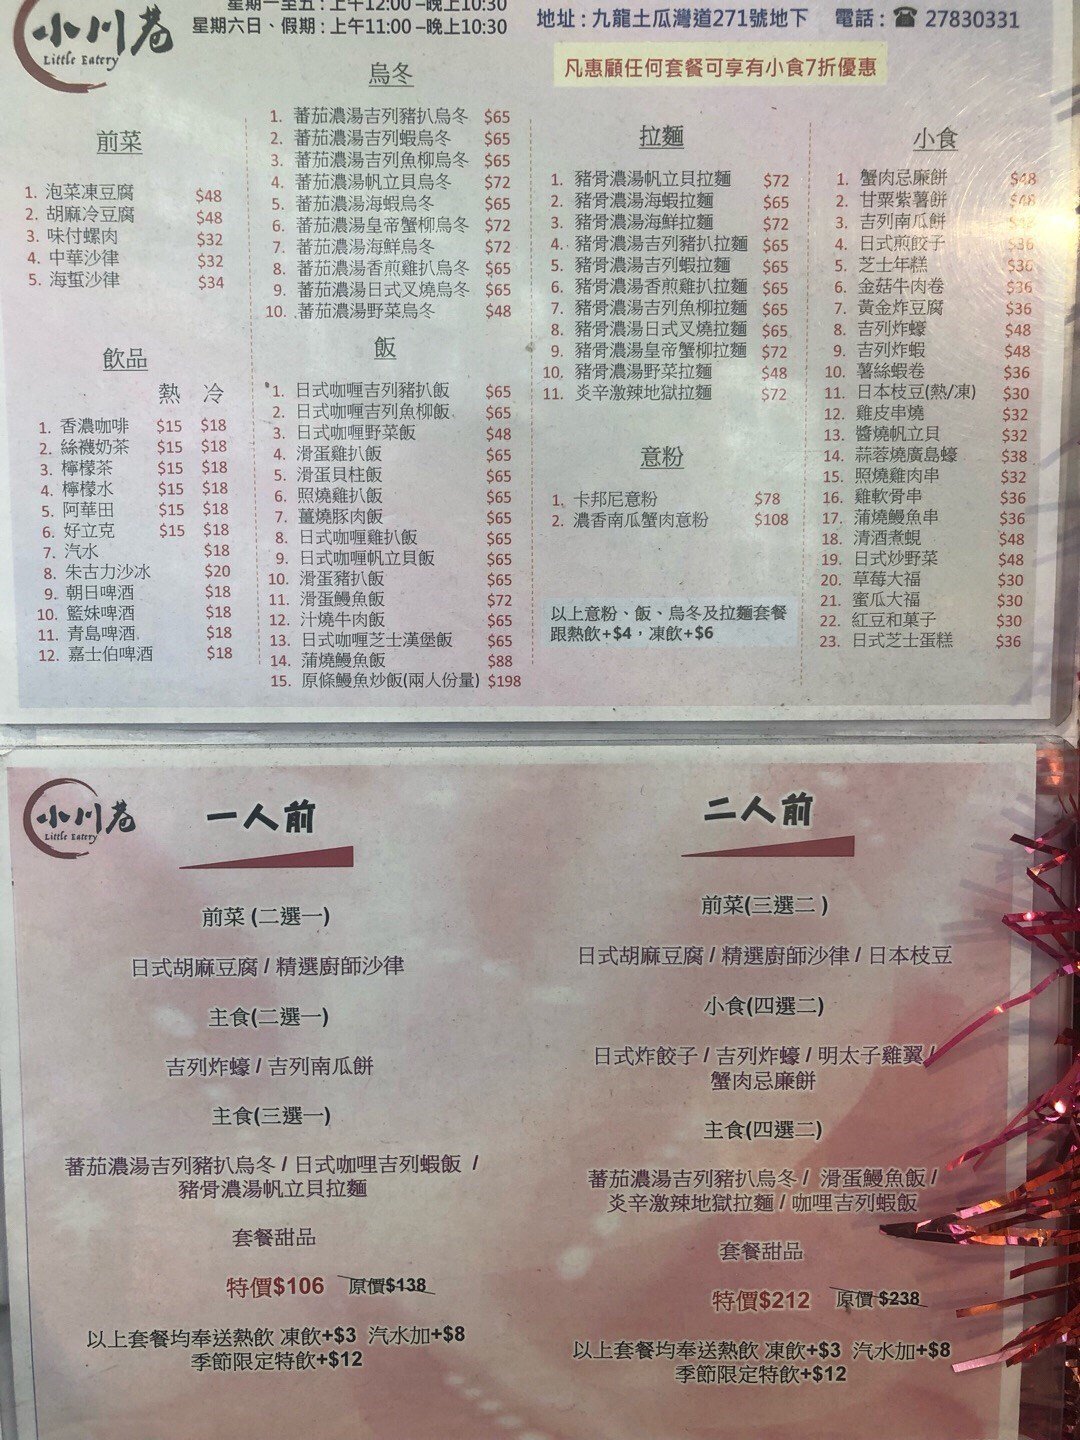 小川巷
Little Eatery
星期一至五：上午12:00 –晚上10:30
星期六日、假期：上午11:00 –晚上10:30
地址：九龍土瓜灣道271號地下 電話：☎ 27830331
凡惠顧任何套餐可享有小食7折優惠
前菜
1. 泡菜凍豆腐 $48
2. 胡麻冷豆腐 $48
3. 味付螺肉 $32
4. 中華沙律 $32
5. 海蜇沙律 $34
飲品
熱 冷
1. 香濃咖啡 $15 $18
2. 絲襪奶茶 $15 $18
3. 檸檬茶 $15 $18
4. 檸檬水 $15 $18
5. 阿華田 $15 $18
6. 好立克 $15 $18
7. 汽水 $18
8. 朱古力沙冰 $20
9. 朝日啤酒 $18
10. 籃妹啤酒 $18
11. 青島啤酒 $18
12. 嘉士伯啤酒 $18
烏冬
1. 蕃茄濃湯吉列豬扒烏冬 $65
2. 蕃茄濃湯吉列蝦烏冬 $65
3. 蕃茄濃湯吉列魚柳烏冬 $65
4. 蕃茄濃湯帆立貝烏冬 $72
5. 蕃茄濃湯海蝦烏冬 $65
6. 蕃茄濃湯皇帝蟹柳烏冬 $72
7. 蕃茄濃湯海鮮烏冬 $72
8. 蕃茄濃湯香煎雞扒烏冬 $65
9. 蕃茄濃湯日式叉燒烏冬 $65
10. 蕃茄濃湯野菜烏冬 $48
飯
1. 日式咖喱吉列豬扒飯 $65
2. 日式咖喱吉列魚柳飯 $65
3. 日式咖喱野菜飯 $48
4. 滑蛋雞扒飯 $65
5. 滑蛋貝柱飯 $65
6. 照燒雞扒飯 $65
7. 薑燒豚肉飯 $65
8. 日式咖喱雞扒飯 $65
9. 日式咖喱帆立貝飯 $65
10. 滑蛋豬扒飯 $65
11. 滑蛋鰻魚飯 $72
12. 汁燒牛肉飯 $65
13. 日式咖喱芝士漢堡飯 $65
14. 蒲燒鰻魚飯 $88
15. 原條鰻魚炒飯(兩人份量) $198
拉麵
1. 豬骨濃湯帆立貝拉麵 $72
2. 豬骨濃湯海蝦拉麵 $65
3. 豬骨濃湯海鮮拉麵 $72
4. 豬骨濃湯吉列豬扒拉麵 $65
5. 豬骨濃湯吉列蝦拉麵 $65
6. 豬骨濃湯香煎雞扒拉麵 $65
7. 豬骨濃湯吉列魚柳拉麵 $65
8. 豬骨濃湯日式叉燒拉麵 $65
9. 豬骨濃湯皇帝蟹柳拉麵 $72
10. 豬骨濃湯野菜拉麵 $48
11. 炎辛激辣地獄拉麵 $72
意粉
1. 卡邦尼意粉 $78
2. 濃香南瓜蟹肉意粉 $108
以上意粉、飯、烏冬及拉麵套餐
跟熱飲+$4，凍飲+$6
小食
1. 蟹肉忌廉餅 $48
2. 甘粟紫薯餅 $48
3. 吉列南瓜餅
4. 日式煎餃子 $36
5. 芝士年糕 $36
6. 金菇牛肉卷 $36
7. 黃金炸豆腐 $36
8. 吉列炸蠔 $48
9. 吉列炸蝦 $48
10. 薯絲蝦卷 $36
11. 日本枝豆(熱/凍) $30
12. 雞皮串燒 $32
13. 醬燒帆立貝 $32
14. 蒜蓉燒廣島蠔 $38
15. 照燒雞肉串 $32
16. 雞軟骨串 $36
17. 蒲燒鰻魚串 $36
18. 清酒煮蜆 $48
19. 日式炒野菜 $48
20. 草莓大福 $30
21. 蜜瓜大福 $30
22. 紅豆和菓子 $30
23. 日式芝士蛋糕 $36
小川巷
Little Eatery
一人前
前菜 (二選一)
日式胡麻豆腐 / 精選廚師沙律
主食(二選一)
吉列炸蠔 / 吉列南瓜餅
主食(三選一)
蕃茄濃湯吉列豬扒烏冬 / 日式咖哩吉列蝦飯 /
豬骨濃湯帆立貝拉麵
套餐甜品
特價$106 原價$138
以上套餐均奉送熱飲 凍飲+$3 汽水加+$8
季節限定特飲+$12
二人前
前菜(三選二 )
日式胡麻豆腐 / 精選廚師沙律 / 日本枝豆
小食(四選二)
日式炸餃子 / 吉列炸蠔 / 明太子雞翼 /
蟹肉忌廉餅
主食(四選二)
蕃茄濃湯吉列豬扒烏冬 / 滑蛋鰻魚飯 /
炎辛激辣地獄拉麵 / 咖哩吉列蝦飯
套餐甜品
特價$212 原價 $238
以上套餐均奉送熱飲 凍飲+$3 汽水加+$8
季節限定特飲+$12